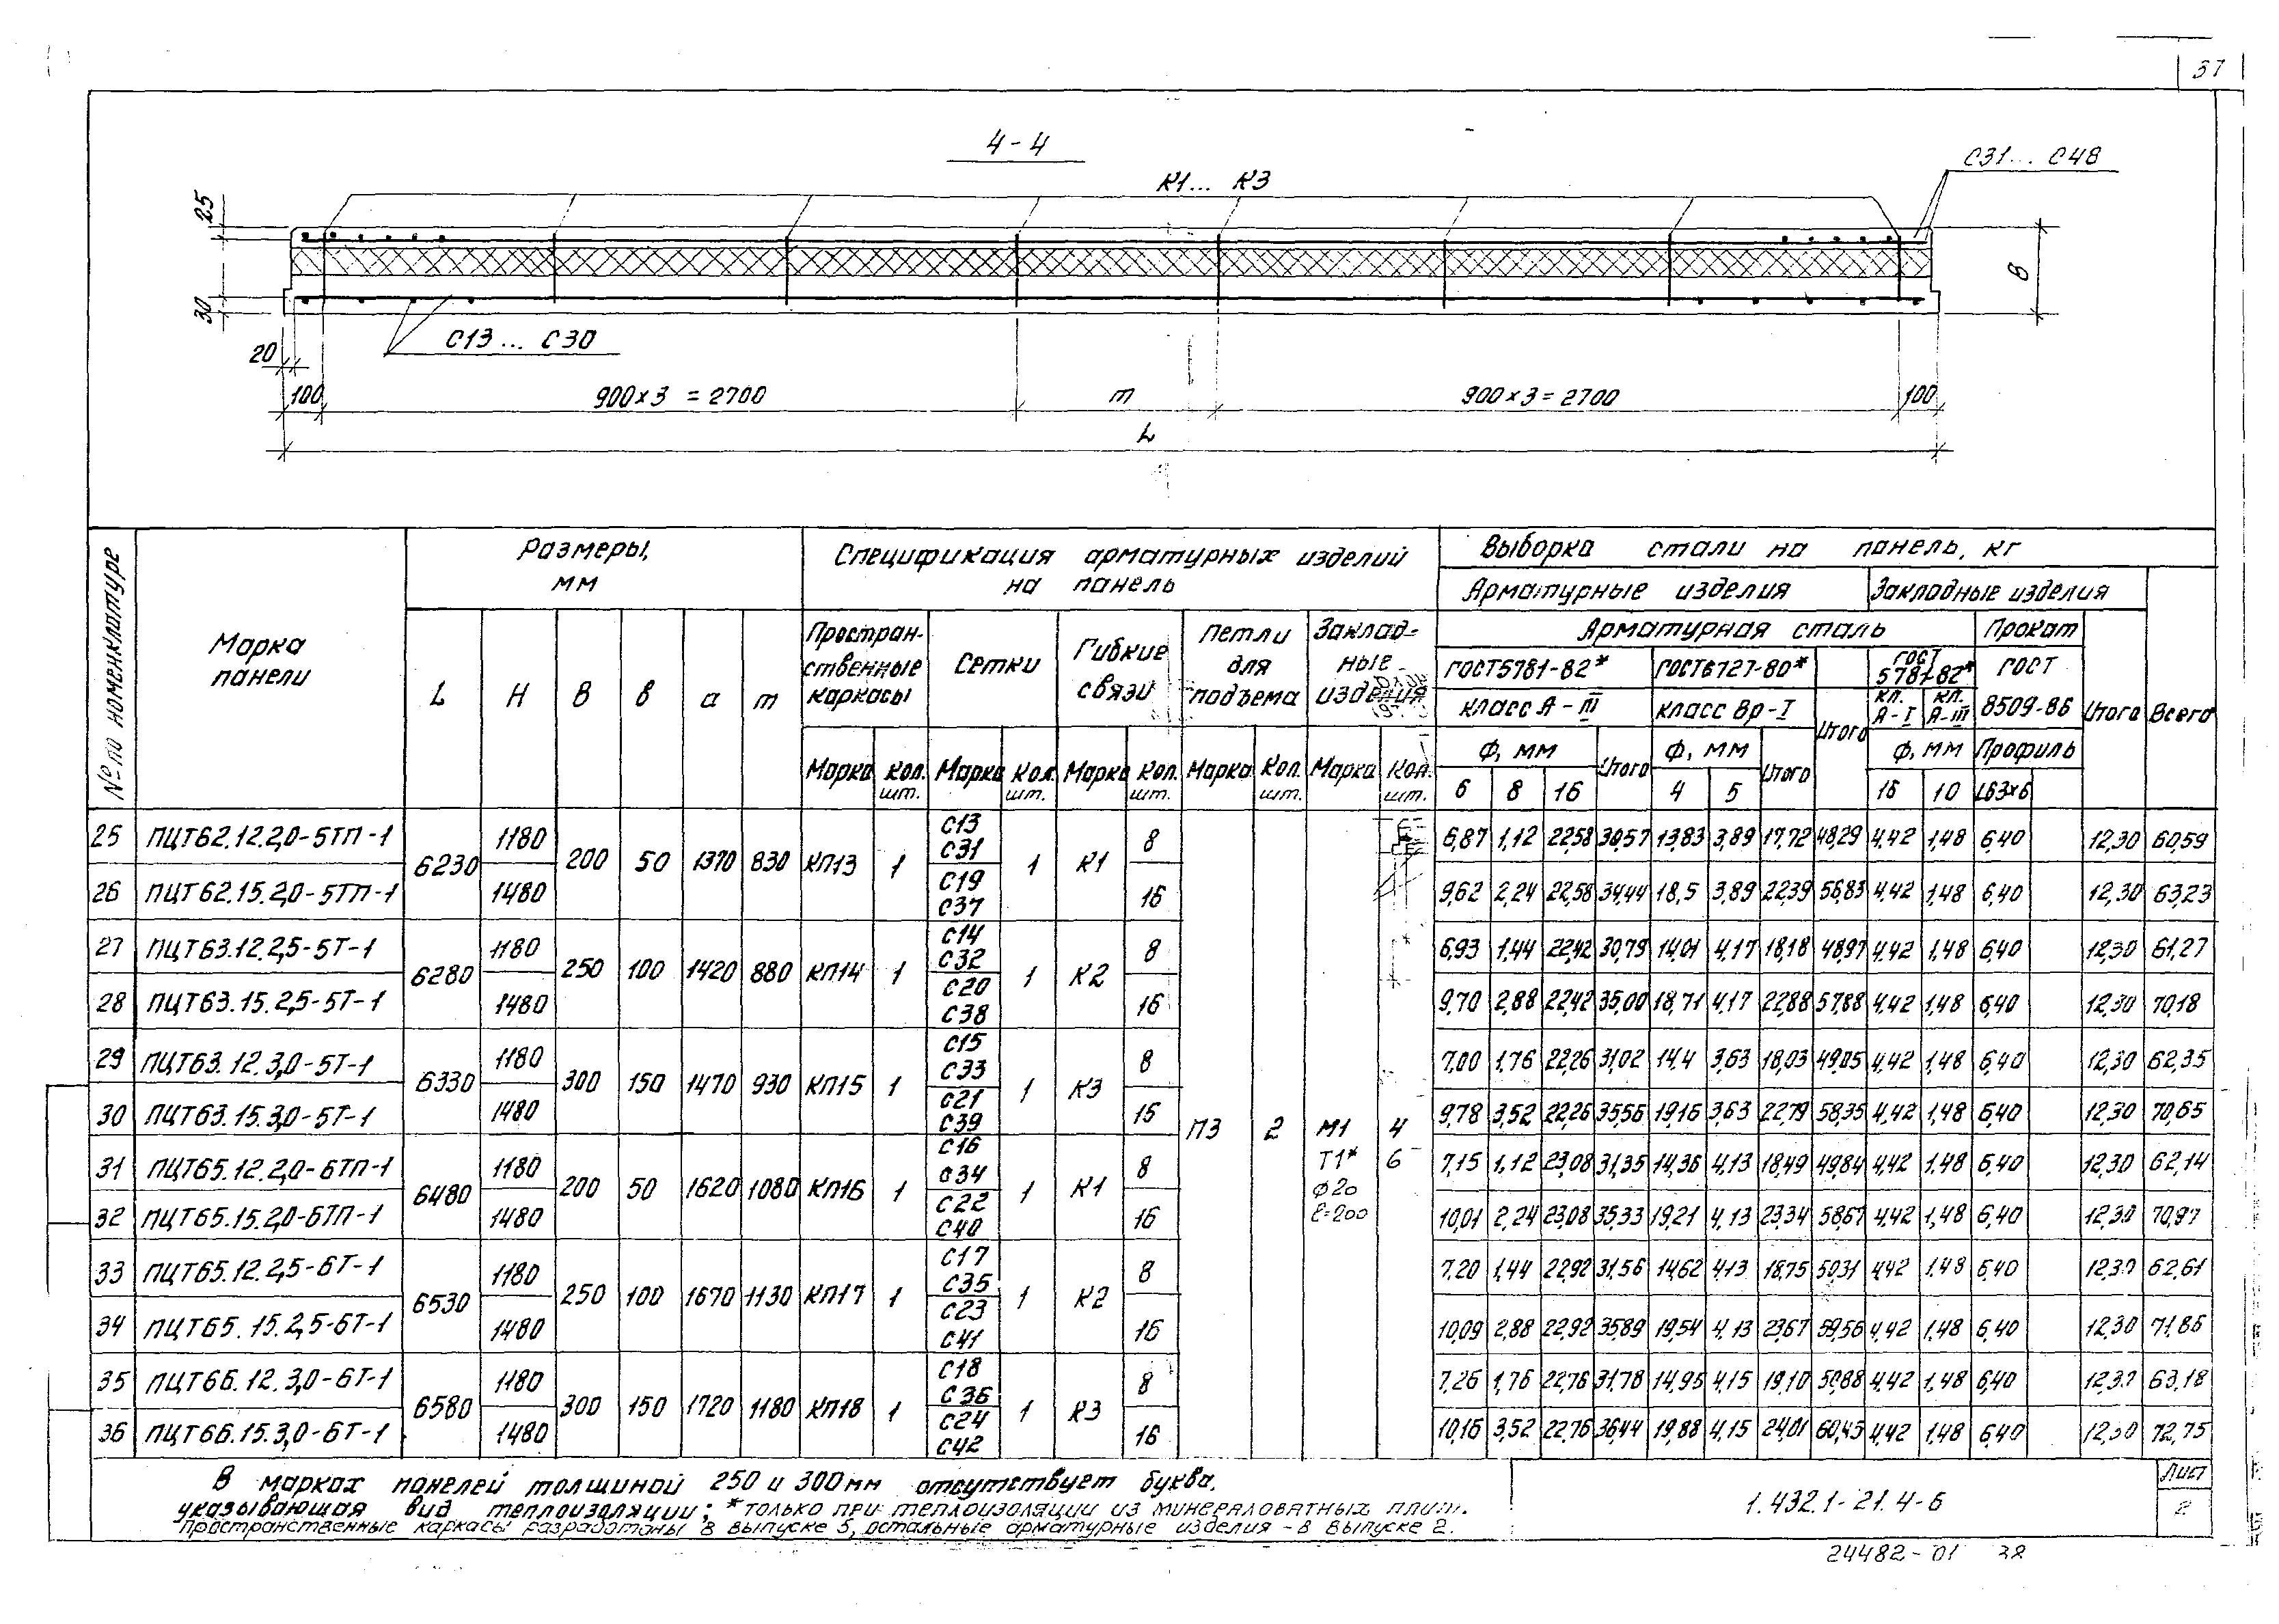 37
4-4
К1... К3
С31... С48
25
30
С13... С30
В
20
100
900×3 = 2700
m
900×3=2700
100
L
№ по номенклатуре
Марка панели
Размеры, мм
L H В в а m
Спецификация арматурных изделий на панель
Простран-ственные каркасы
Сетки
Гибкие связи
Петли для подъема
Заклад-ные изделия
Марка Кол. шт. Марка Кол. шт. Марка Кол. шт. Марка Кол. шт. Марка Кол. шт.
Выборка стали на панель, кг
Арматурные изделия Закладные изделия
Арматурная сталь Прокат
ГОСТ5781-82* ГОСТ6727-80* ГОСТ 5781-82* ГОСТ 8509-86
класс А-III класс Вр-I Итого кл. А-I кл. А-III Итого Всего
Ф, мм Итого Ф, мм Итого Ф, мм Профиль
6 8 16 4 5 16 10 L63×6
25 ПЦТ62.12.2,0-5ТП-1 6230 1180 200 50 1370 830 КП13 1 С13 С31 1 К1 8 6,87 1,12 22,58 30,57 13,83 3,89 17,72 48,29 4,42 1,48 6,40 12,30 60,59
26 ПЦТ62.15.2,0-5ТП-1 1480 С19 С37 16 9,62 2,24 22,58 34,44 18,5 3,89 22,39 56,83 4,42 1,48 6,40 12,30 63,23
27 ПЦТ63.12.2,5-5Т-1 6280 1180 250 100 1420 880 КП14 1 С14 С32 1 К2 8 6,93 1,44 22,42 30,79 14,01 4,17 18,18 48,97 4,42 1,48 6,40 12,30 61,27
28 ПЦТ63.15.2,5-5Т-1 1480 С20 С38 16 9,70 2,88 22,42 35,00 18,71 4,17 22,88 57,88 4,42 1,48 6,40 12,30 70,18
29 ПЦТ63.12.3,0-5Т-1 6330 1180 300 150 1470 930 КП15 1 С15 С33 1 К3 8 7,00 1,76 22,26 31,02 14,4 3,63 18,03 49,05 4,42 1,48 6,40 12,30 62,35
30 ПЦТ63.15.3,0-5Т-1 1480 С21 С39 16 П3 2 М1 4 9,78 3,52 22,26 35,56 19,16 3,63 22,79 58,35 4,42 1,48 6,40 12,30 70,65
31 ПЦТ65.12.2,0-6ТП-1 6480 1180 200 50 1620 1080 КП16 1 С16 С34 1 К1 8 Т1* 6 7,15 1,12 23,08 31,35 14,36 4,13 18,49 49,84 4,42 1,48 6,40 12,30 62,14
ф20
ℓ=200
32 ПЦТ65.15.2,0-6ТП-1 1480 С22 С40 16 10,01 2,24 23,08 35,33 19,21 4,13 23,34 58,67 4,42 1,48 6,40 12,30 70,97
33 ПЦТ65.12.2,5-6Т-1 6530 1180 250 100 1670 1130 КП17 1 С17 С35 1 К2 8 7,20 1,44 22,92 31,56 14,62 4,13 18,75 50,31 4,42 1,48 6,40 12,30 62,61
34 ПЦТ65.15.2,5-6Т-1 1480 С23 С41 16 10,09 2,88 22,92 35,89 19,54 4,13 23,67 59,56 4,42 1,48 6,40 12,30 71,86
35 ПЦТ66.12.3,0-6Т-1 6580 1180 300 150 1720 1180 КП18 1 С18 С36 1 К3 8 7,26 1,76 22,76 31,78 14,95 4,15 19,10 50,88 4,42 1,48 6,40 12,30 63,18
36 ПЦТ66.15.3,0-6Т-1 1480 С24 С42 16 10,16 3,52 22,76 36,44 19,88 4,15 24,01 60,45 4,42 1,48 6,40 12,30 72,75
В марках панелей толщиной 250 и 300мм отсутствует буква,
указывающая вид теплоизоляции; *только при теплоизоляции из минераловатных плит.
Пространственные каркасы разработаны в выпуске 5, остальные арматурные изделия - в выпуске 2.
1.432.1-21.4-6
Лист
2
24482-01 38